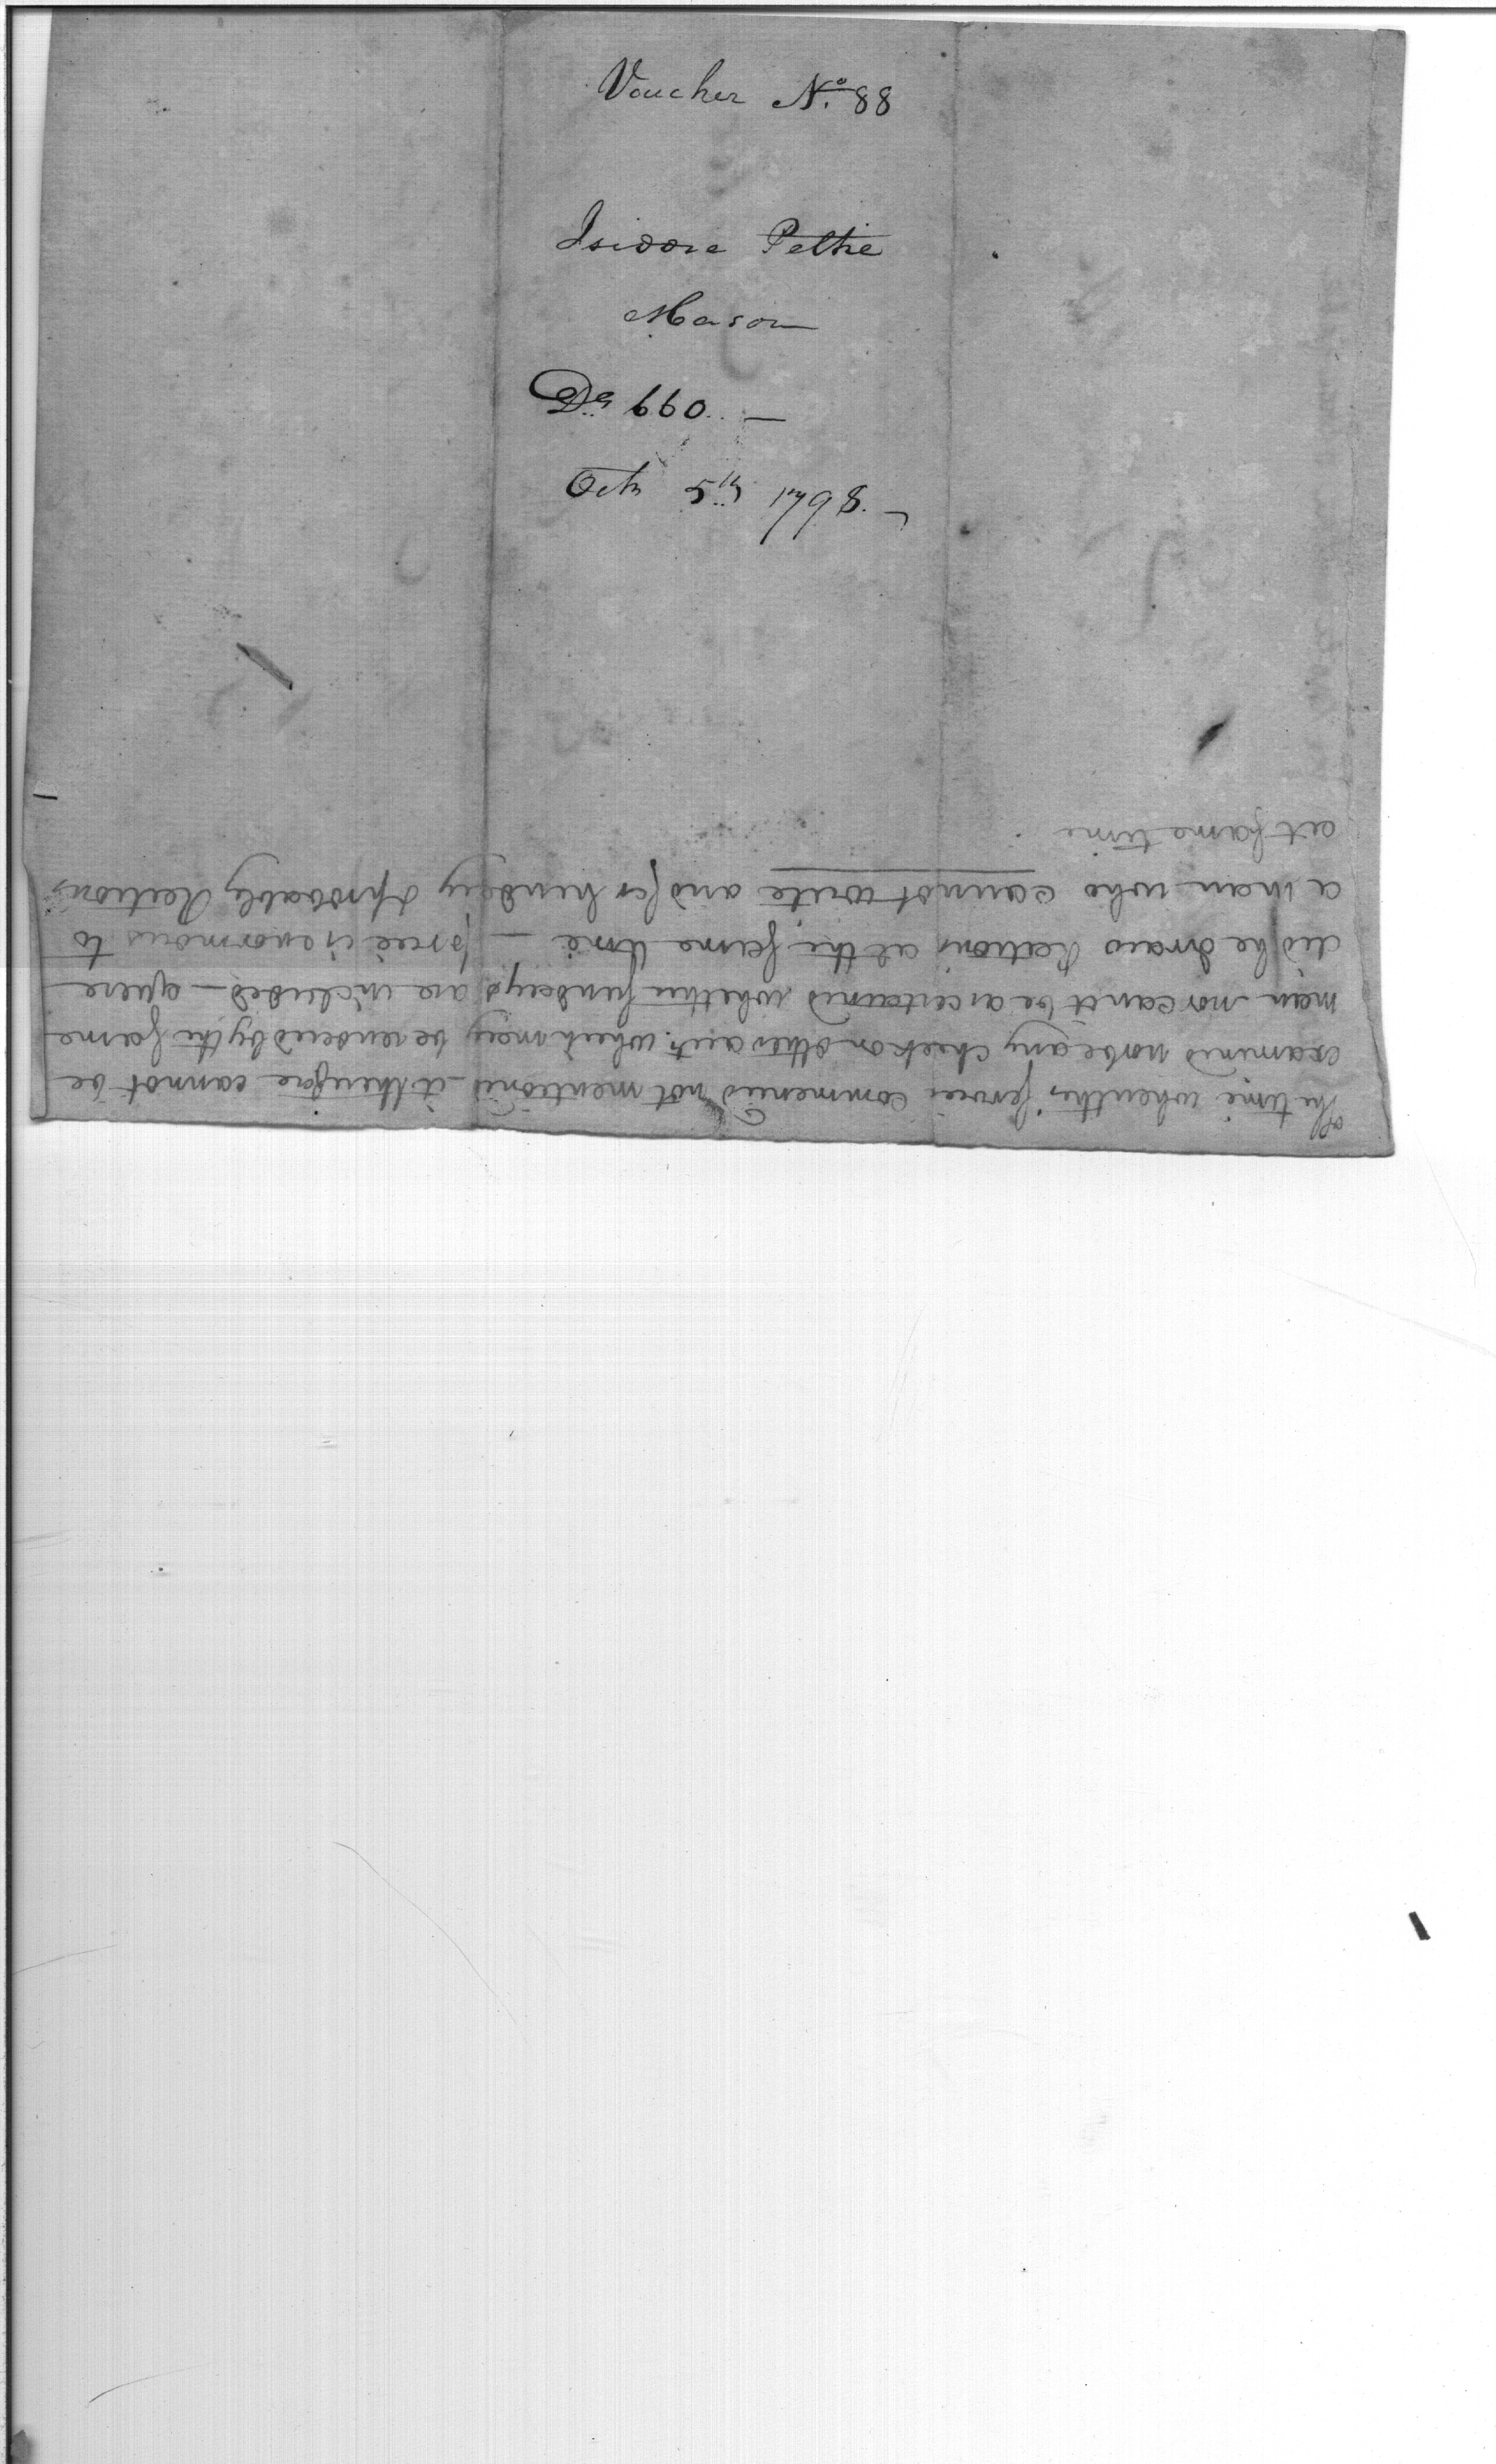 Voucher No. 88
Isidore Peltie
Mason
Drs 660..—
Octr 5th 1798.—
The time when this service commenced not mentioned it therefore cannot be
examined nor be any check on other accts. which may be rendered by the same
man nor can it be ascertained whether sundays are included — quere
did he draw Rations at the same time — price is enormous to
a man who cannot write and for sunday & probably Rations
at same time